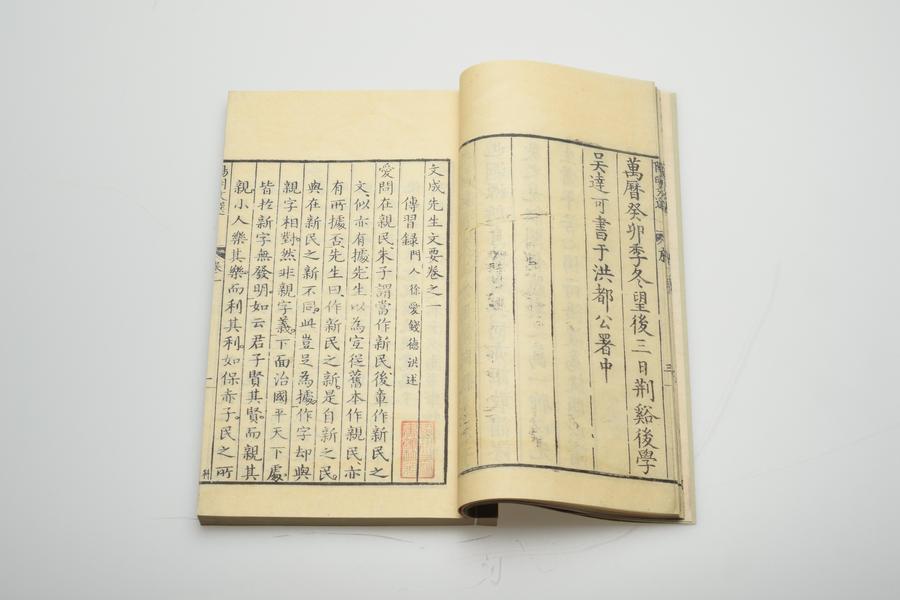 萬曆癸卯季冬望後三日荆谿後學
吴達可書于洪都公署中
文成先生文要卷之一
傳習録 門人徐愛錢德洪述
愛問在親民朱子謂當作新民後章作新民之
文似亦有據先生以為宜從舊本作親民亦
有所據否先生曰作新民之新是自新之民
與在新民之新不同此豈足為據作字却與
親字相對然非親字義下面治國平天下處
皆於新字無發明如云君子賢其賢而親其
親小人樂其樂而利其利如保赤子民之所